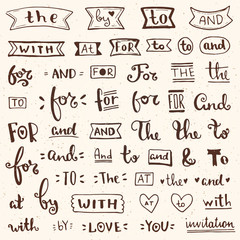 the by to AND
WITH At FOR to to and
for -AND- FOR For THE the
TO for for for FOR And
FOR and AND The the to
for -and- And to and & To
-TO- -The- AT the and
at by WITH AT to with
with -BY- -LOVE- -YOU- invitation